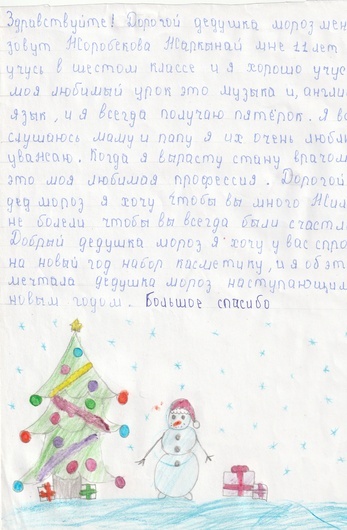 Здравствуйте! Дорогой дедушка мороз мен
зовут Жоробекова Жаркынай мне 11 лет
учусь в шестом классе и я хорошо учус
моя любимый урок это музыка и, англи
язык, и я всегда получаю пятёрок. Я вс
слушаюсь маму и папу я их очень любл
уважаю. Когда я вырасту стану врачом
это моя любимая профессия. Дорогой
дед мороз я хочу чтобы вы много жил
не болели чтобы вы всегда были счастл
Добрый дедушка мороз я хочу у вас спро
на новый год набор касметику, и я об эт
мечтала дедушка мороз наступающим
новым годом. Большое спасибо